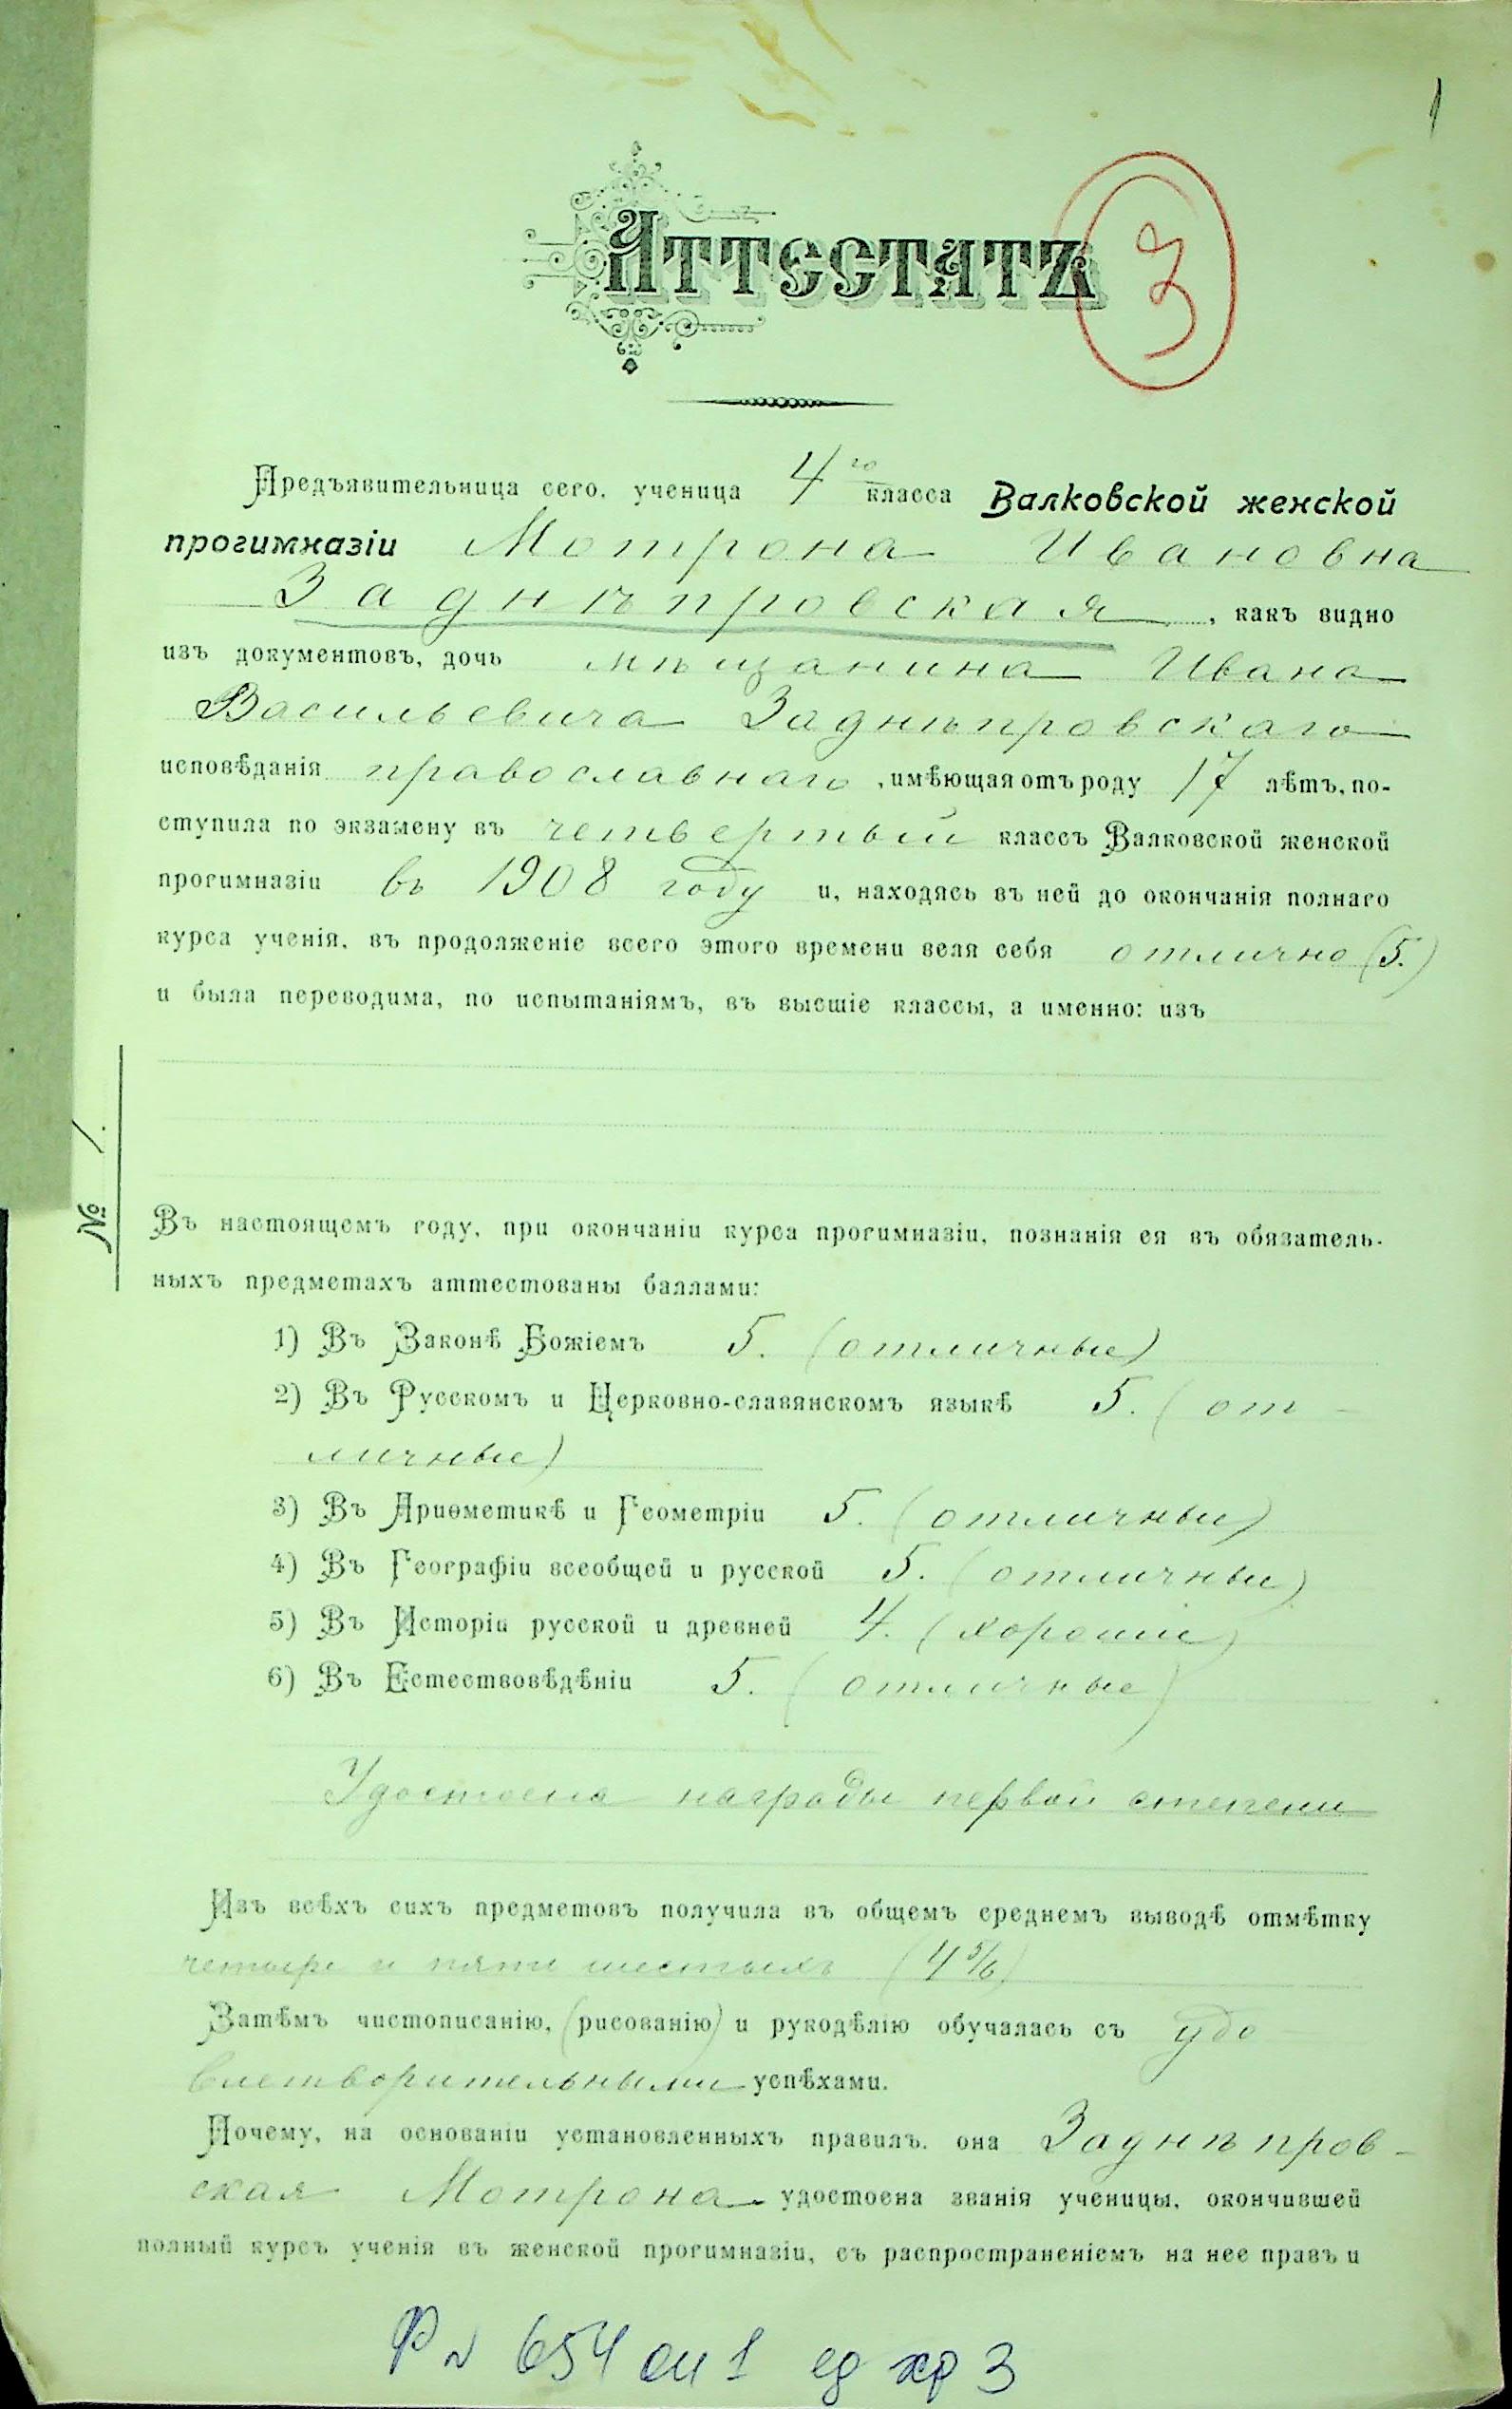 1
Аттестатъ
3
Предъявительница сего, ученица 4го класса Валковской женской
прогимназіи Мотрона Ивановна
Заднѣпровская, какъ видно
изъ документовъ, дочь мѣщанина Ивана
Васильевича Заднѣпровскаго
исповѣданія православнаго, имѣющая отъ роду 17 лѣтъ, по-
ступила по экзамену въ четвертый классъ Валковской женской
прогимназіи въ 1908 году и, находясь въ ней до окончанія полнаго
курса ученія, въ продолженіе всего этого времени вела себя отлично (5.)
и была переводима, по испытаніямъ, въ высшіе классы, а именно: изъ
№ 1.
Въ настоящемъ году, при окончаніи курса прогимназіи, познанія ея въ обязатель-
ныхъ предметахъ аттестованы баллами:
1) Въ Законѣ Божіемъ 5. (отличные)
2) Въ Русскомъ и Церковно-славянскомъ языкѣ 5. (от-
личные)
3) Въ Ариѳметикѣ и Геометріи 5. (отличные)
4) Въ Географіи всеобщей и русской 5. (отличные)
5) Въ Исторіи русской и древней 4. (хорошіе)
6) Въ Естествовѣдѣніи 5. (отличные)
Удостоена награды первой степени
Изъ всѣхъ сихъ предметовъ получила въ общемъ среднемъ выводѣ отмѣтку
четыре и пять шестыхъ (4 5/6)
Затѣмъ чистописанію, (рисованію) и рукодѣлію обучалась съ удо
влетворительными успѣхами.
Почему, на основаніи установленныхъ правилъ, она Заднѣпров-
ская Мотрона удостоена званія ученицы, окончившей
полный курсъ ученія въ женской прогимназіи, съ распространеніемъ на нее правъ и
Ф № 654 оп 1 ед хр 3